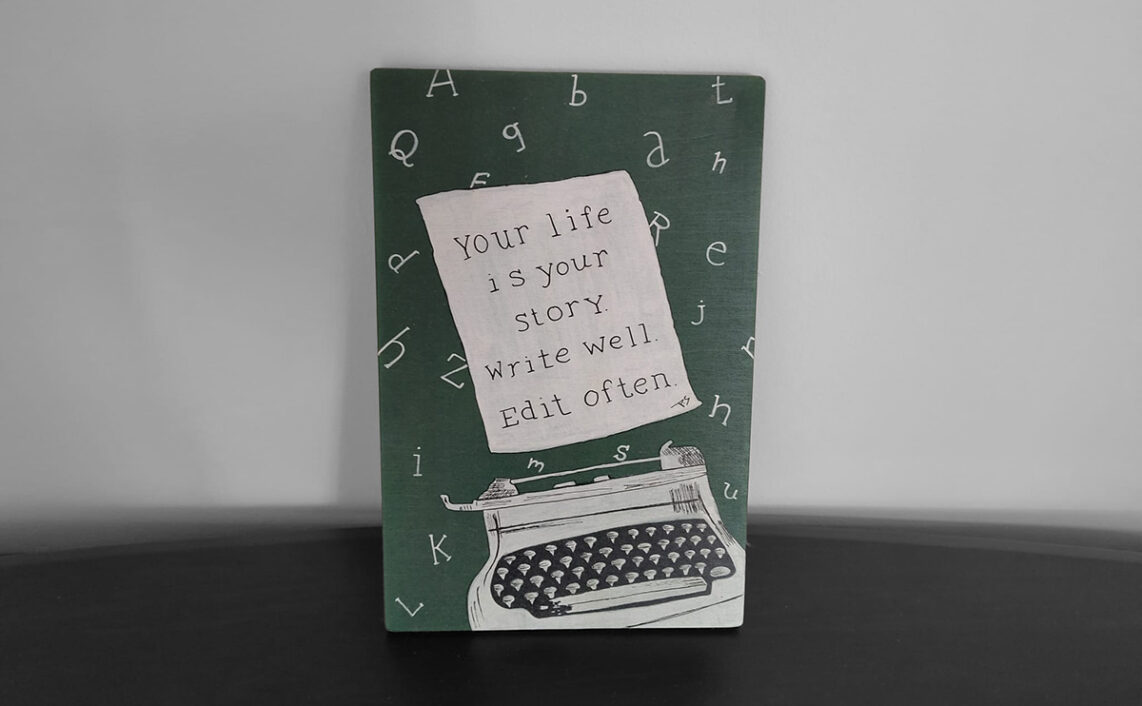 A
b
t
Q
g
a
h
F
Your life
is your
story.
Write well.
Edit often.
R
e
j
h
Z
r
h
i
m
s
u
K
L